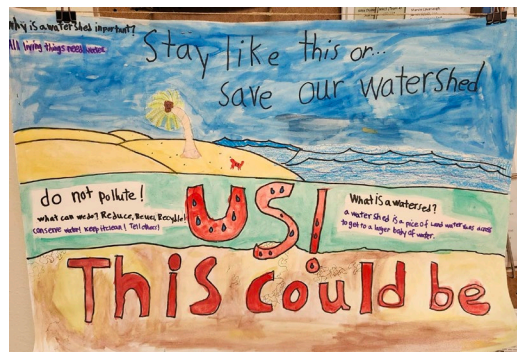 Why is a watershed important?
All living things need water.
Stay like this or...
save our watershed
do not pollute!
what can we do? Reduce, Reuse, Recycle!
conserve water! keep it clean! Tell others!
US!
What is a watersed?
a watershed is a pice of land water runs across
to get to a lager body of water.
This could be